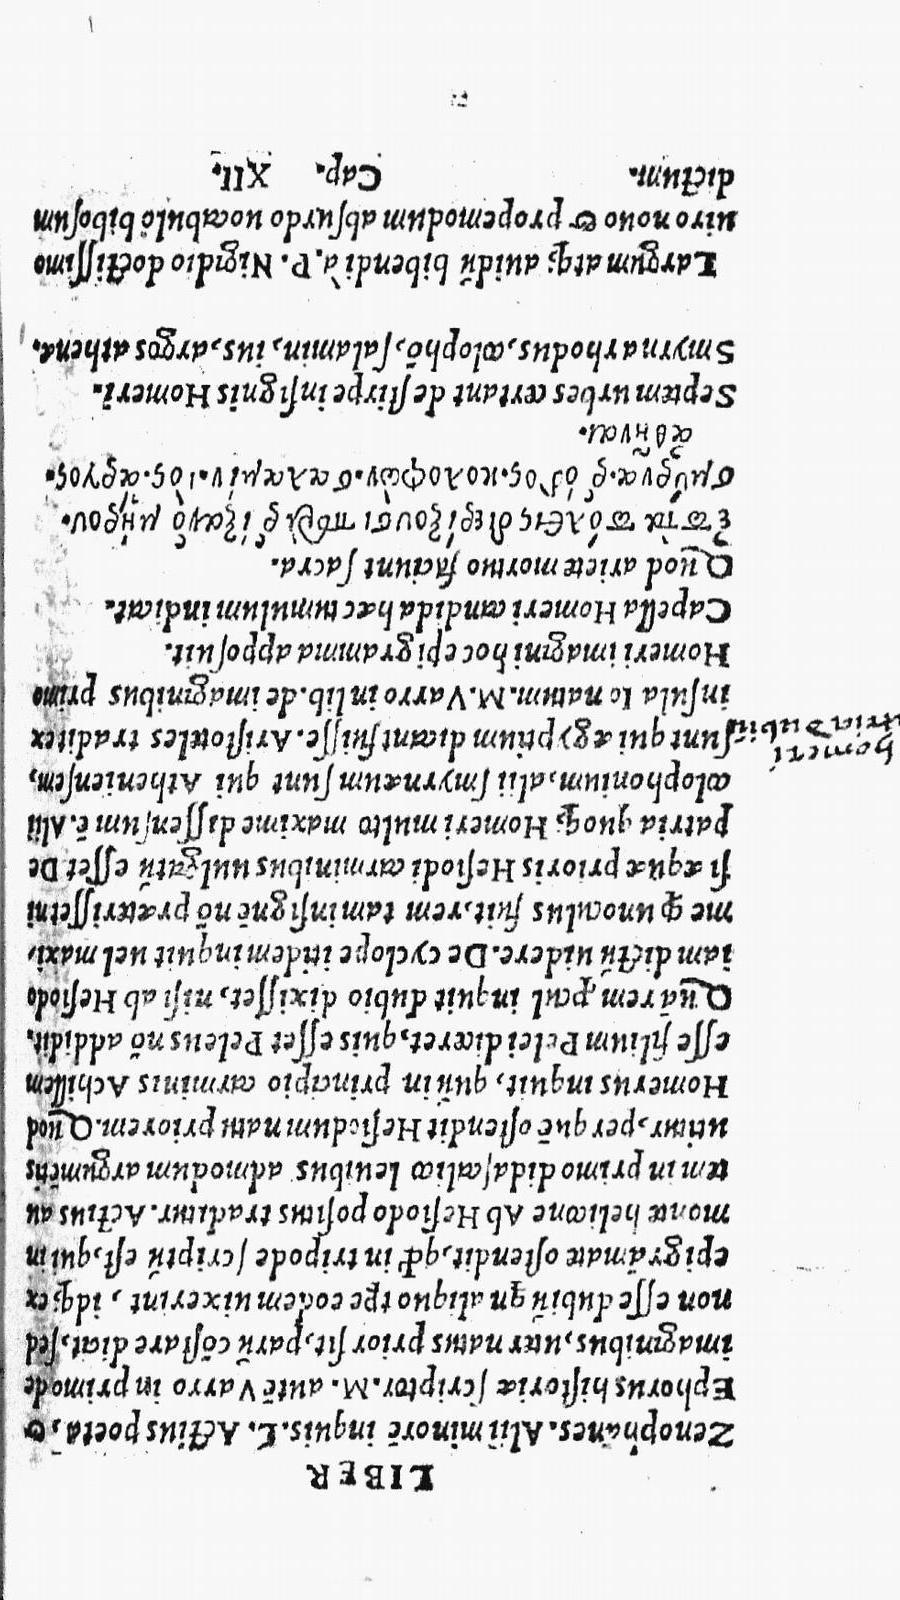 LIBER
Zenophanes. Alii minorē inquis. L. Actius poeta, &
Ephorus historiæ scriptor. M. autē Varro in primo de
imaginibus, uter natus prior sit, parū cōstare dicit, sed
non esse dubiū qn aliquo tpe eodem uixerint, idq; ex
epigrāmate ostendit, qd in tripode scriptū est, qui in
monte helicone Ab Hesiodo positus traditur. Actius au
tem in primo didascalico leuibus admodum argumētis
utitur, per que ostendit Hesiodum natu priorem. Quod
Homerus inquit, quū in principio carminis Achillem
esse filium Pelei diceret, quis esset Peleus nō addidit.
Quā rem procul inquit dubio dixisset, nisi ab Hesiodo
iam dictū uidere. De cyclope itidem inquit uel maxi,
me qd unoculus fuit, rem tam insignē nō præterissetni
si æque prioris Hesiodi carminibus uulgatū esset De
patria quoq; Homeri multo maxime dissensum ē. Alii
colophonium, alii smyrnæum sunt qui Atheniensem,
sunt qui ægyptium dicant fuisse. Aristoteles tradit ex
insula Io natum. M. Varro in lib. de imaginibus primo
Homeri imagini hoc epigramma apposuit.
Capella Homeri candida hæc tumulum indicat.
Quod ariete mortuo faciunt sacra.
ἑπτὰ πόλεις διερίζουσι περὶ ῥίζαν ὁμήρου.
σμύρνα. ῥόδος. κολοφὼν. σαλαμίν. ἰος. αργος.
ἀθῆναι.
Septem urbes certant de stirpe insignis Homeri.
Smyrna rhodus, colophō, salamin, ius, argos athenæ.
Largum atq; auidū bibendi à. P. Nigidio doctissimo
uiro nouo & propemodum absurdo uocabulo bibosum
dictum. Cap. XII.
homeri
patria dubia